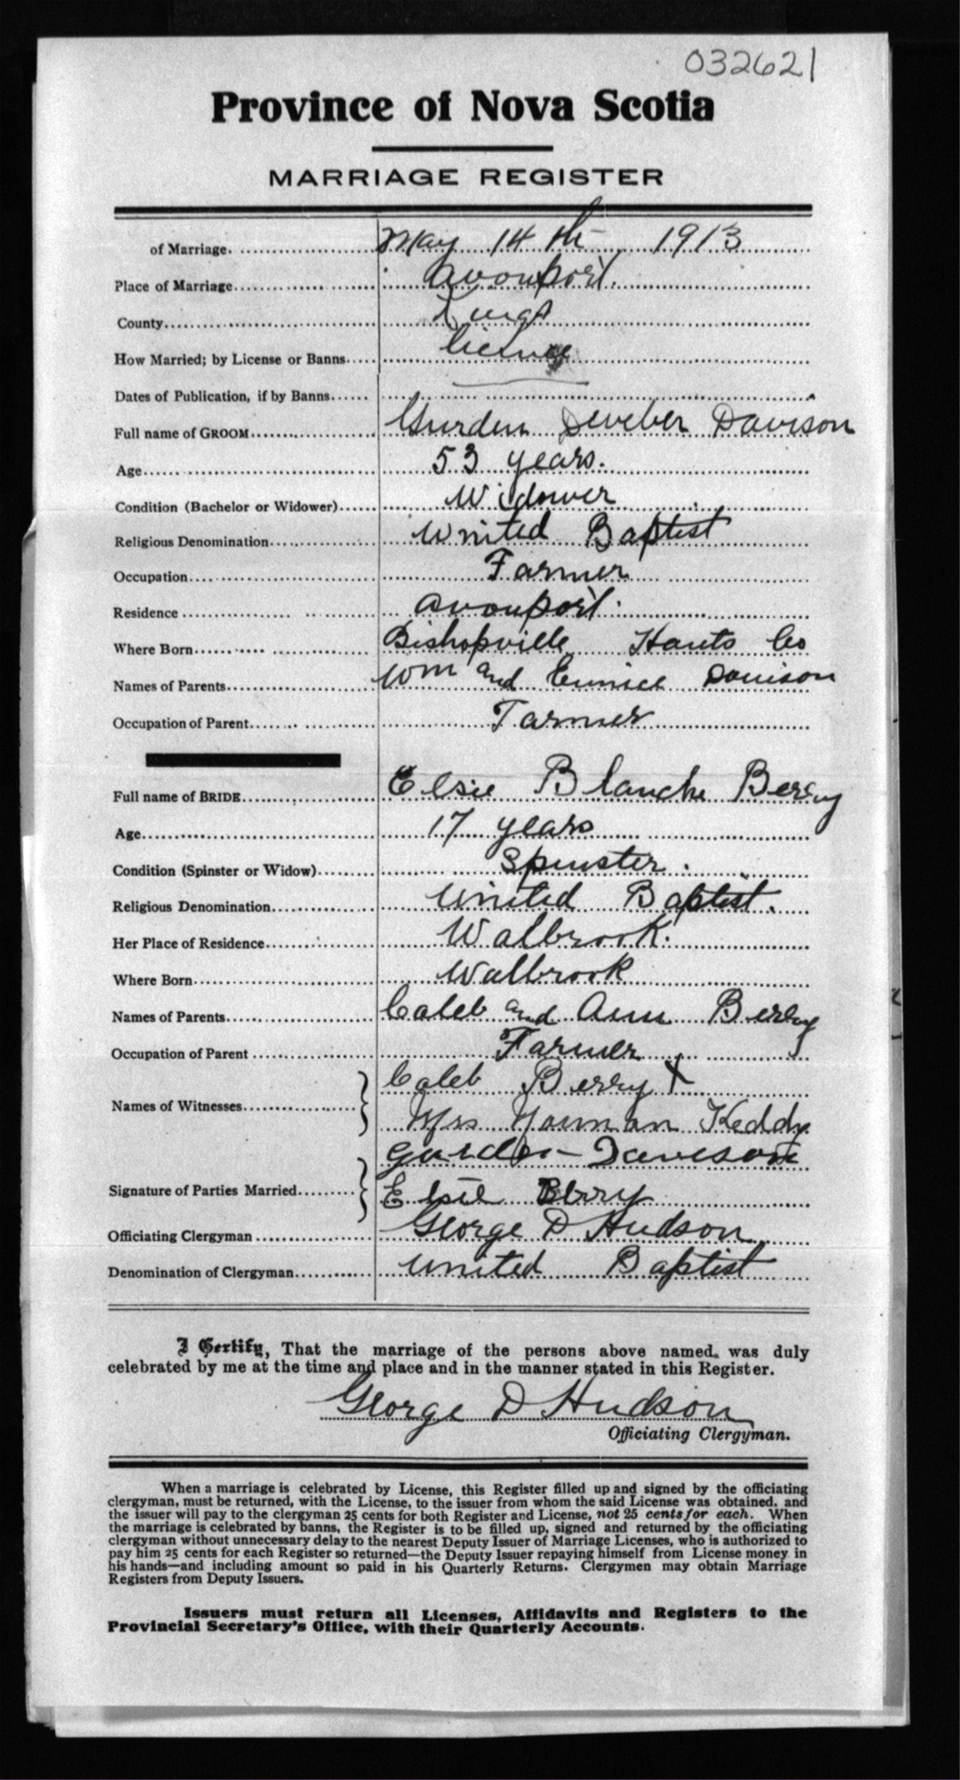 032621
Province of Nova Scotia
MARRIAGE REGISTER
of Marriage May 14th 1913
Place of Marriage Avonport.
County Kings
How Married; by License or Banns license
Dates of Publication, if by Banns
Full name of GROOM Gurden Deveber Davison
Age 53 years.
Condition (Bachelor or Widower) Widower
Religious Denomination United Baptist
Occupation Farmer
Residence Avonport.
Where Born Bishopville Hants Co
Names of Parents Wm and Eunice Davison
Occupation of Parent Farmer
Full name of BRIDE Elsie Blanche Berry
Age 17 years
Condition (Spinster or Widow) Spinster.
Religious Denomination United Baptist.
Her Place of Residence Walbrook.
Where Born Walbrook
Names of Parents Caleb and Ann Berry
Occupation of Parent Farmer
Caleb Berry X
Names of Witnesses
Mrs Norman Keddy
Davison
Signature of Parties Married
Elsie Berry
Officiating Clergyman George D Hudson
Denomination of Clergyman United Baptist
I Certify, That the marriage of the persons above named, was duly
celebrated by me at the time and place and in the manner stated in this Register.
George D Hudson
Officiating Clergyman.
When a marriage is celebrated by License, this Register filled up and signed by the officiating
clergyman, must be returned, with the License, to the issuer from whom the said License was obtained, and
the issuer will pay to the clergyman 25 cents for both Register and License, not 25 cents for each. When
the marriage is celebrated by banns, the Register is to be filled up, signed and returned by the officiating
clergyman without unnecessary delay to the nearest Deputy Issuer of Marriage Licenses, who is authorized to
pay him 25 cents for each Register so returned—the Deputy Issuer repaying himself from License money in
his hands—and including amount so paid in his Quarterly Returns. Clergymen may obtain Marriage
Registers from Deputy Issuers.
Issuers must return all Licenses, Affidavits and Registers to the
Provincial Secretary's Office, with their Quarterly Accounts.